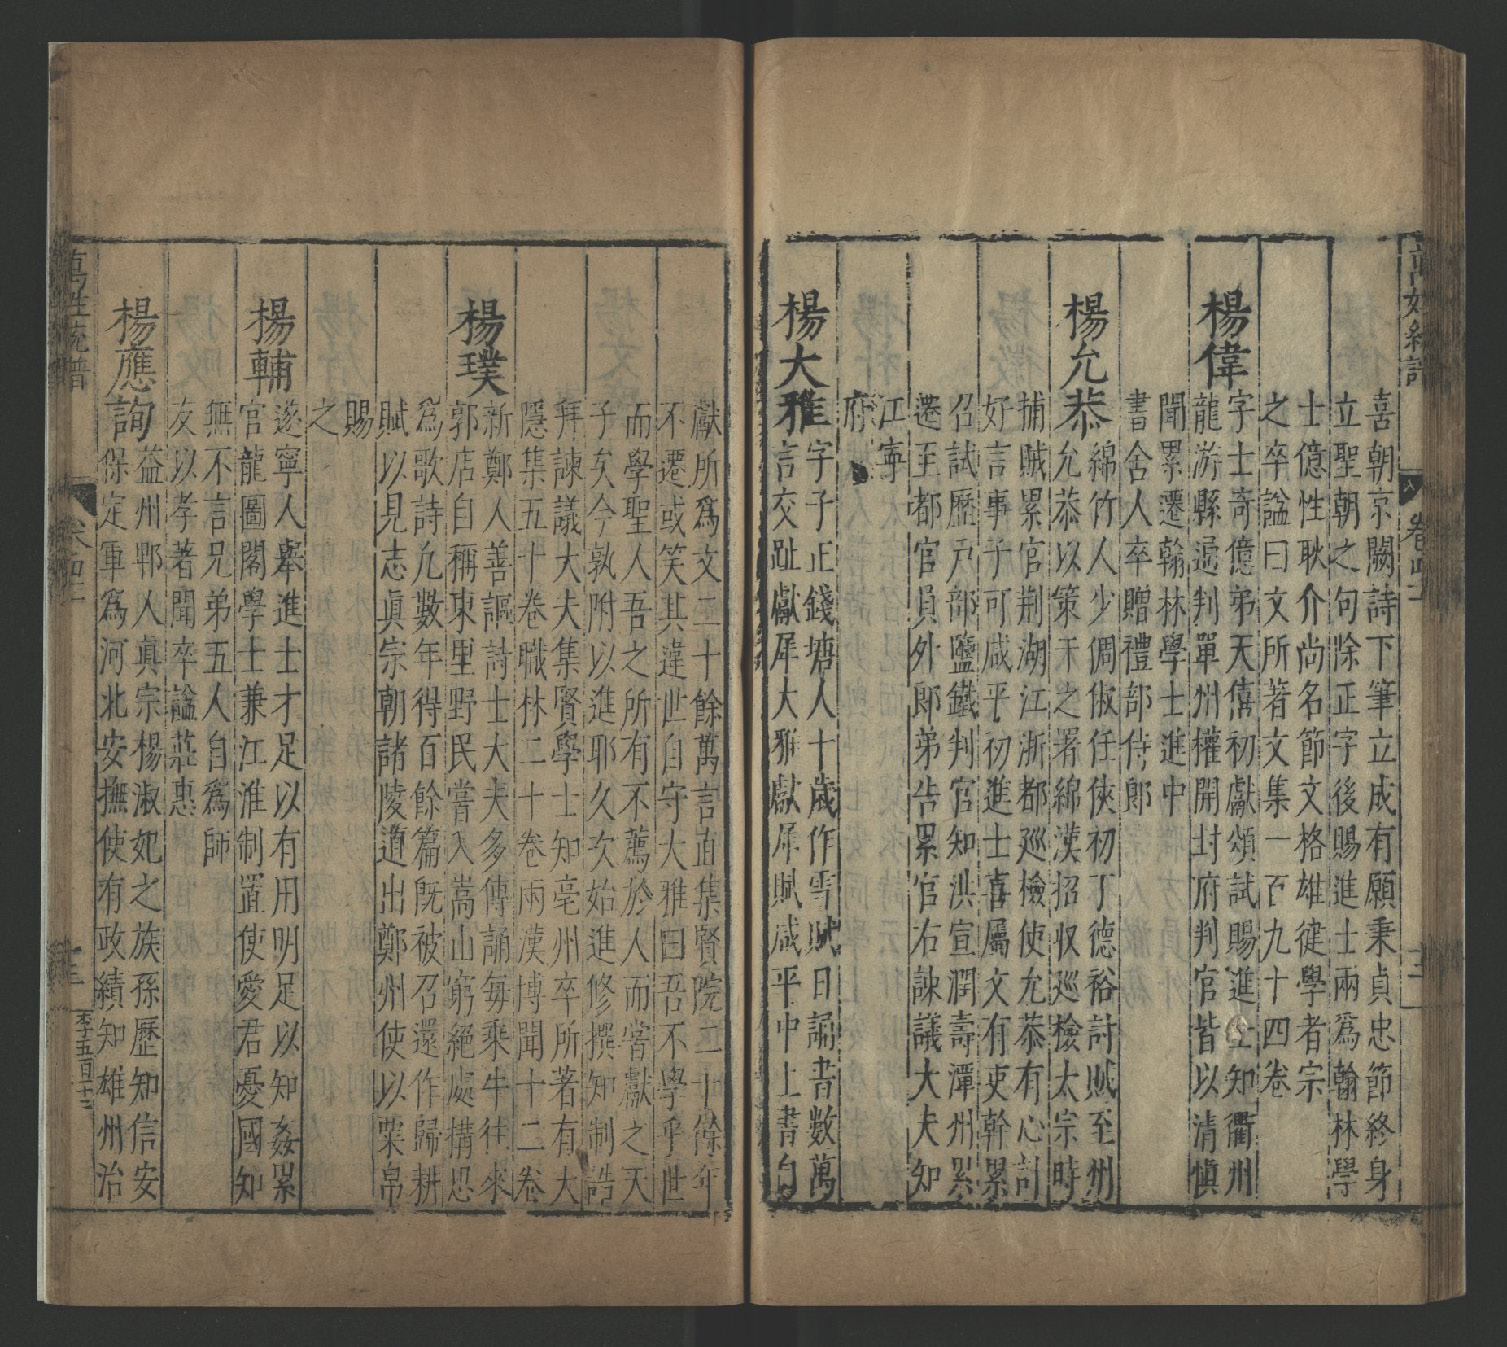 喜朝京闕詩下筆立成有願秉貞忠節終身
立聖朝之句除正字後賜進士兩爲翰林學
士億性耿介尚名節文格雄健學者宗
之卒諡曰文所著文集一百九十四卷
楊偉
字士奇億弟天僖初獻頌試賜進士知衢州
龍游縣遷判單州權開封府判官皆以清愼
聞累遷翰林學士進中
書舍人卒贈禮部侍郎
楊允恭
綿竹人少倜俶任俠初丁德裕計賦至州
允恭以策干之署綿漢招收巡檢太宗時
捕賊累官荆湖江浙都巡檢使允恭有心計
好言事子可咸平初進士喜屬文有吏幹累
召試歷戸部鹽鐵判官知洪宣潤壽潭州累
遷至都官員外郎弟告累官右諫議大夫知
江寧
府
楊大雅
字子正錢塘人十歲作雪賦日誦書數萬
言交趾獻犀大雅獻犀賦咸平中上書自
獻所爲文二十餘萬言直集賢院二十餘年
不遷或笑其違世自守大雅曰吾不學乎世
而學聖人吾之所有不薦於人而嘗獻之天
子矣今孰附以進耶久次始進修撰知制誥
拜諫議大夫集賢學士知亳州卒所著有大
隱集五十卷職林二十卷兩漢博聞十二卷
楊璞
新鄭人善謳詩士大夫多傳誦每乘牛往來
郭店自稱東里野民嘗入嵩山窮絕處搆思
爲歌詩凡數年得百餘篇既被召還作歸耕
賦以見志眞宗朝諸陵道出鄭州使以粟帛
賜
之
楊輔
遂寧人舉進士才足以有用明足以知姦累
官龍圖閣學士兼江淮制置使愛君憂國知
無不言兄弟五人自爲師
友以孝著聞卒諡莊惠
楊應詢
益州郫人眞宗楊淑妃之族孫歷知信安
保定軍爲河北安撫使有政績知雄州治
萬姓統譜
卷四十一